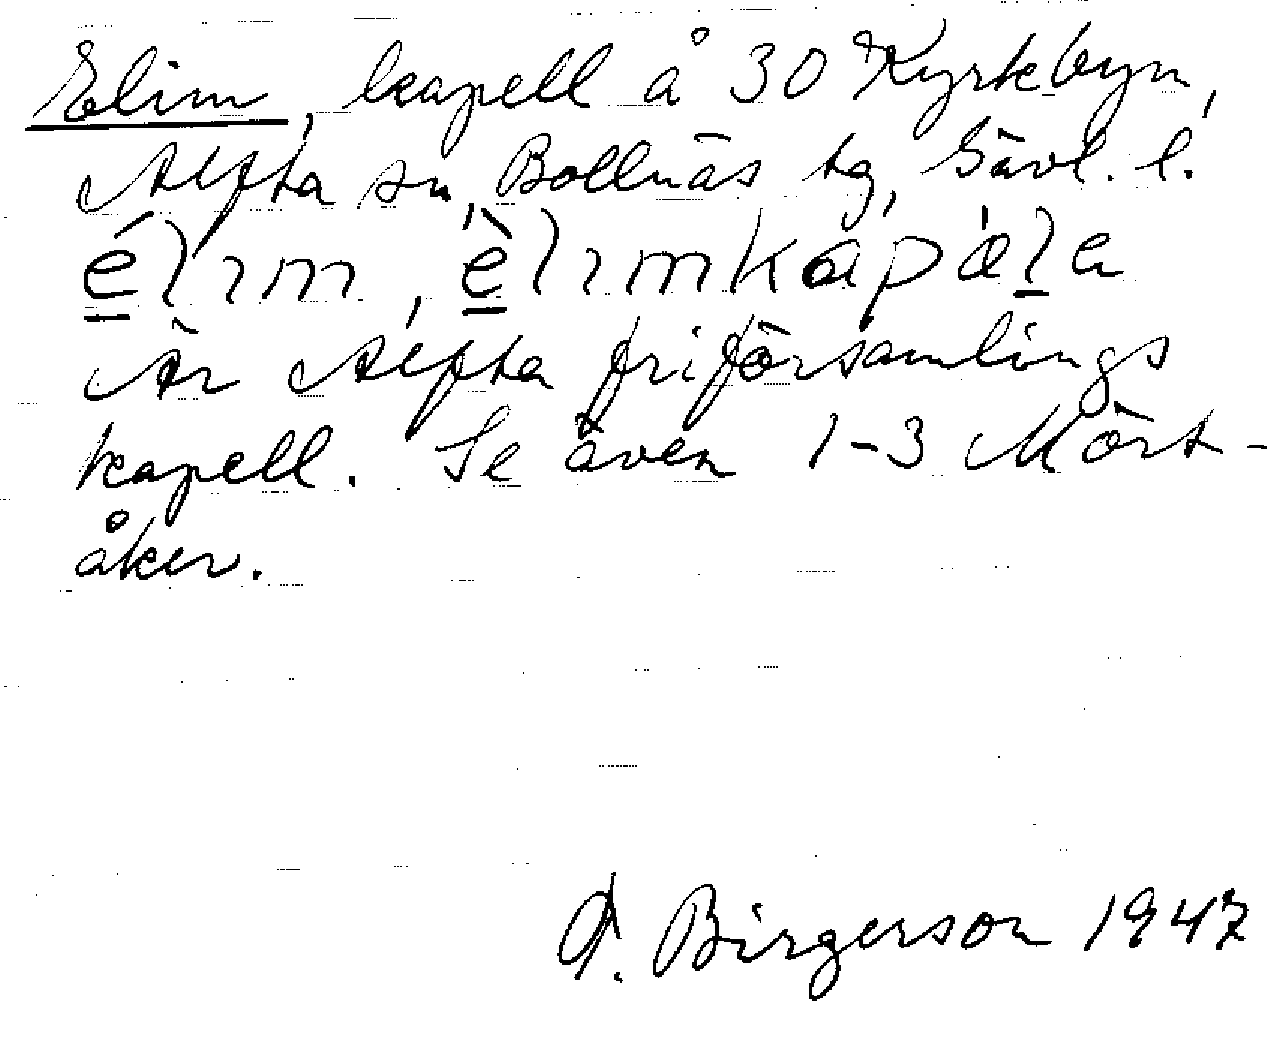 Elim, kapell å 30 Kyrkbyn,
Alfta sn, Bollnäs tg, Gävl. l.
élım, èlımkapæ̀la
Är Alfta friförsamlings
kapell. Se även 1-3 Mört-
åker.
Birgerson 1947